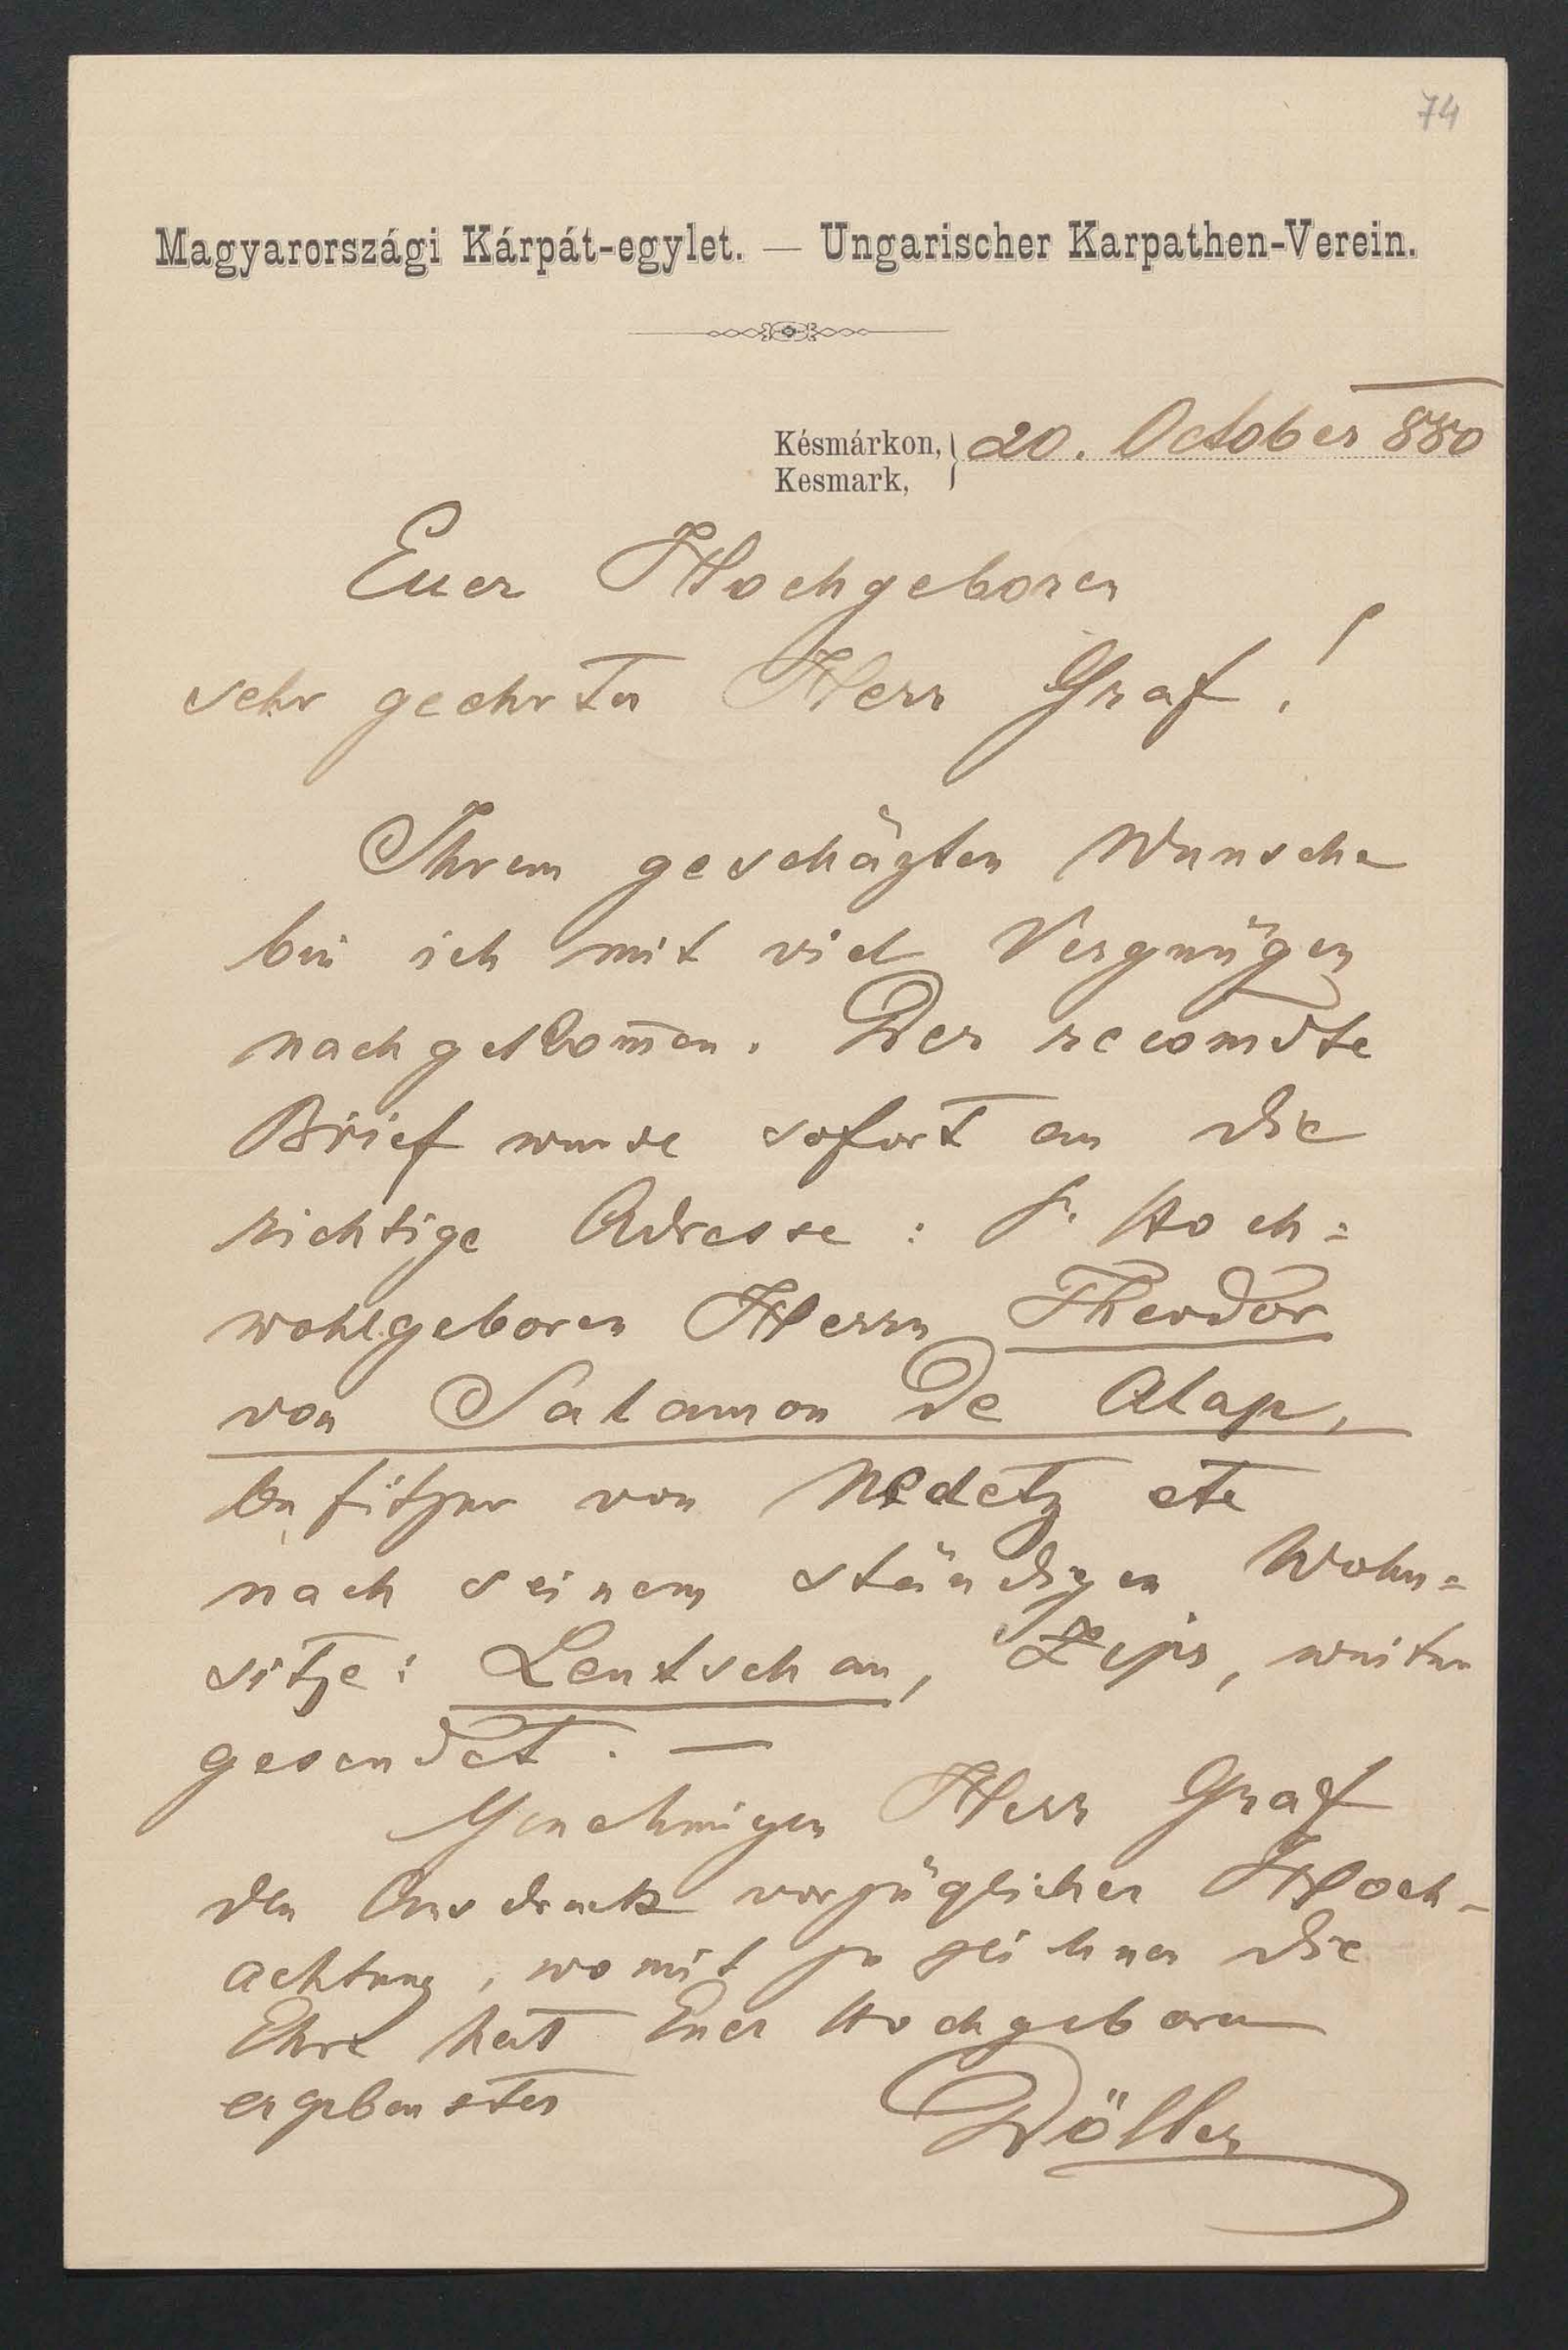 74
Magyarországi Kárpát-egylet. — Ungarischer Karpathen-Verein.
Késmárkon, } 20. October 880
Kesmark,
Euer Hochgeboren
sehr geehrter Herr Graf!
Ihrem geschäzten Wunsche
bin ich mit viel Vergnügen
nachgekom̅en. Der recomdte
Brief wurde sofort an die
richtige Adresse: Sr. Hoch=
wohlgeboren Herrn Theodor
von Salamon De Alap,
Besitzer von Nedetz etc
nach seinem ständigen Wohn=
sitze: Leutschau, Zips, weiter
gesendet. —
Genehmigen Herr Graf
den Ausdruck vorzüglicher Hoch-
achtung, womit zu zeichnen die
Ehre hat Euer Hochgeboren
ergebenster Döller